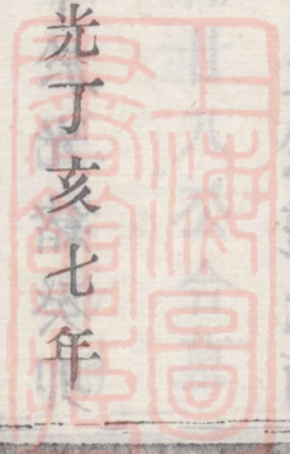 光丁亥七年
上海圖
書館藏